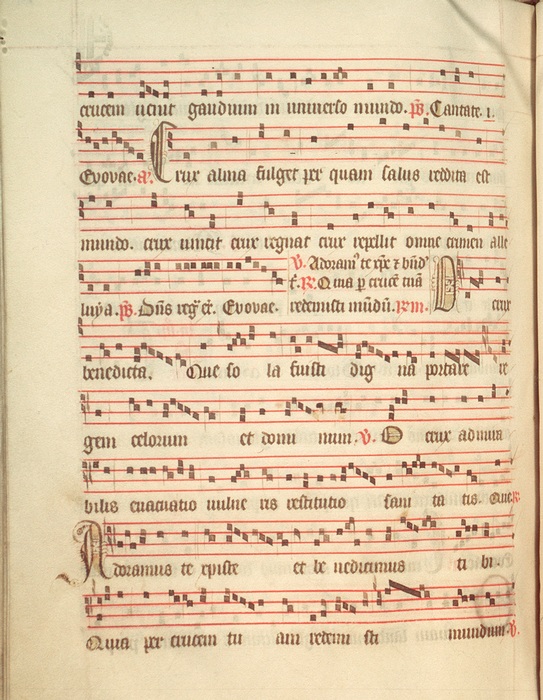 crucem uenit gaudium in uniuerso mundo. ps. Cantate. i.
Evovae. a. Crux alma fulget per quam salus reddita est
mundo. crux uincit crux regnat crux repellit omne crimen alle
V. Adoram' te xpe & bnd'
t'. R. Q tua p cruce tuā
luya. ps. Dns reg' ct. Evovae. redemisti mūdū. rm. O crux
benedicta. Que so la fuisti dig na portare re
gem celorum et domi num. V. O crux admira
bilis euacuatio uulne ris restitutio sani ta tis. Que. R.
Adoramus te christe et be nedicimus ti bi.
Quia per crucem tu am redemi sti mundum. V.